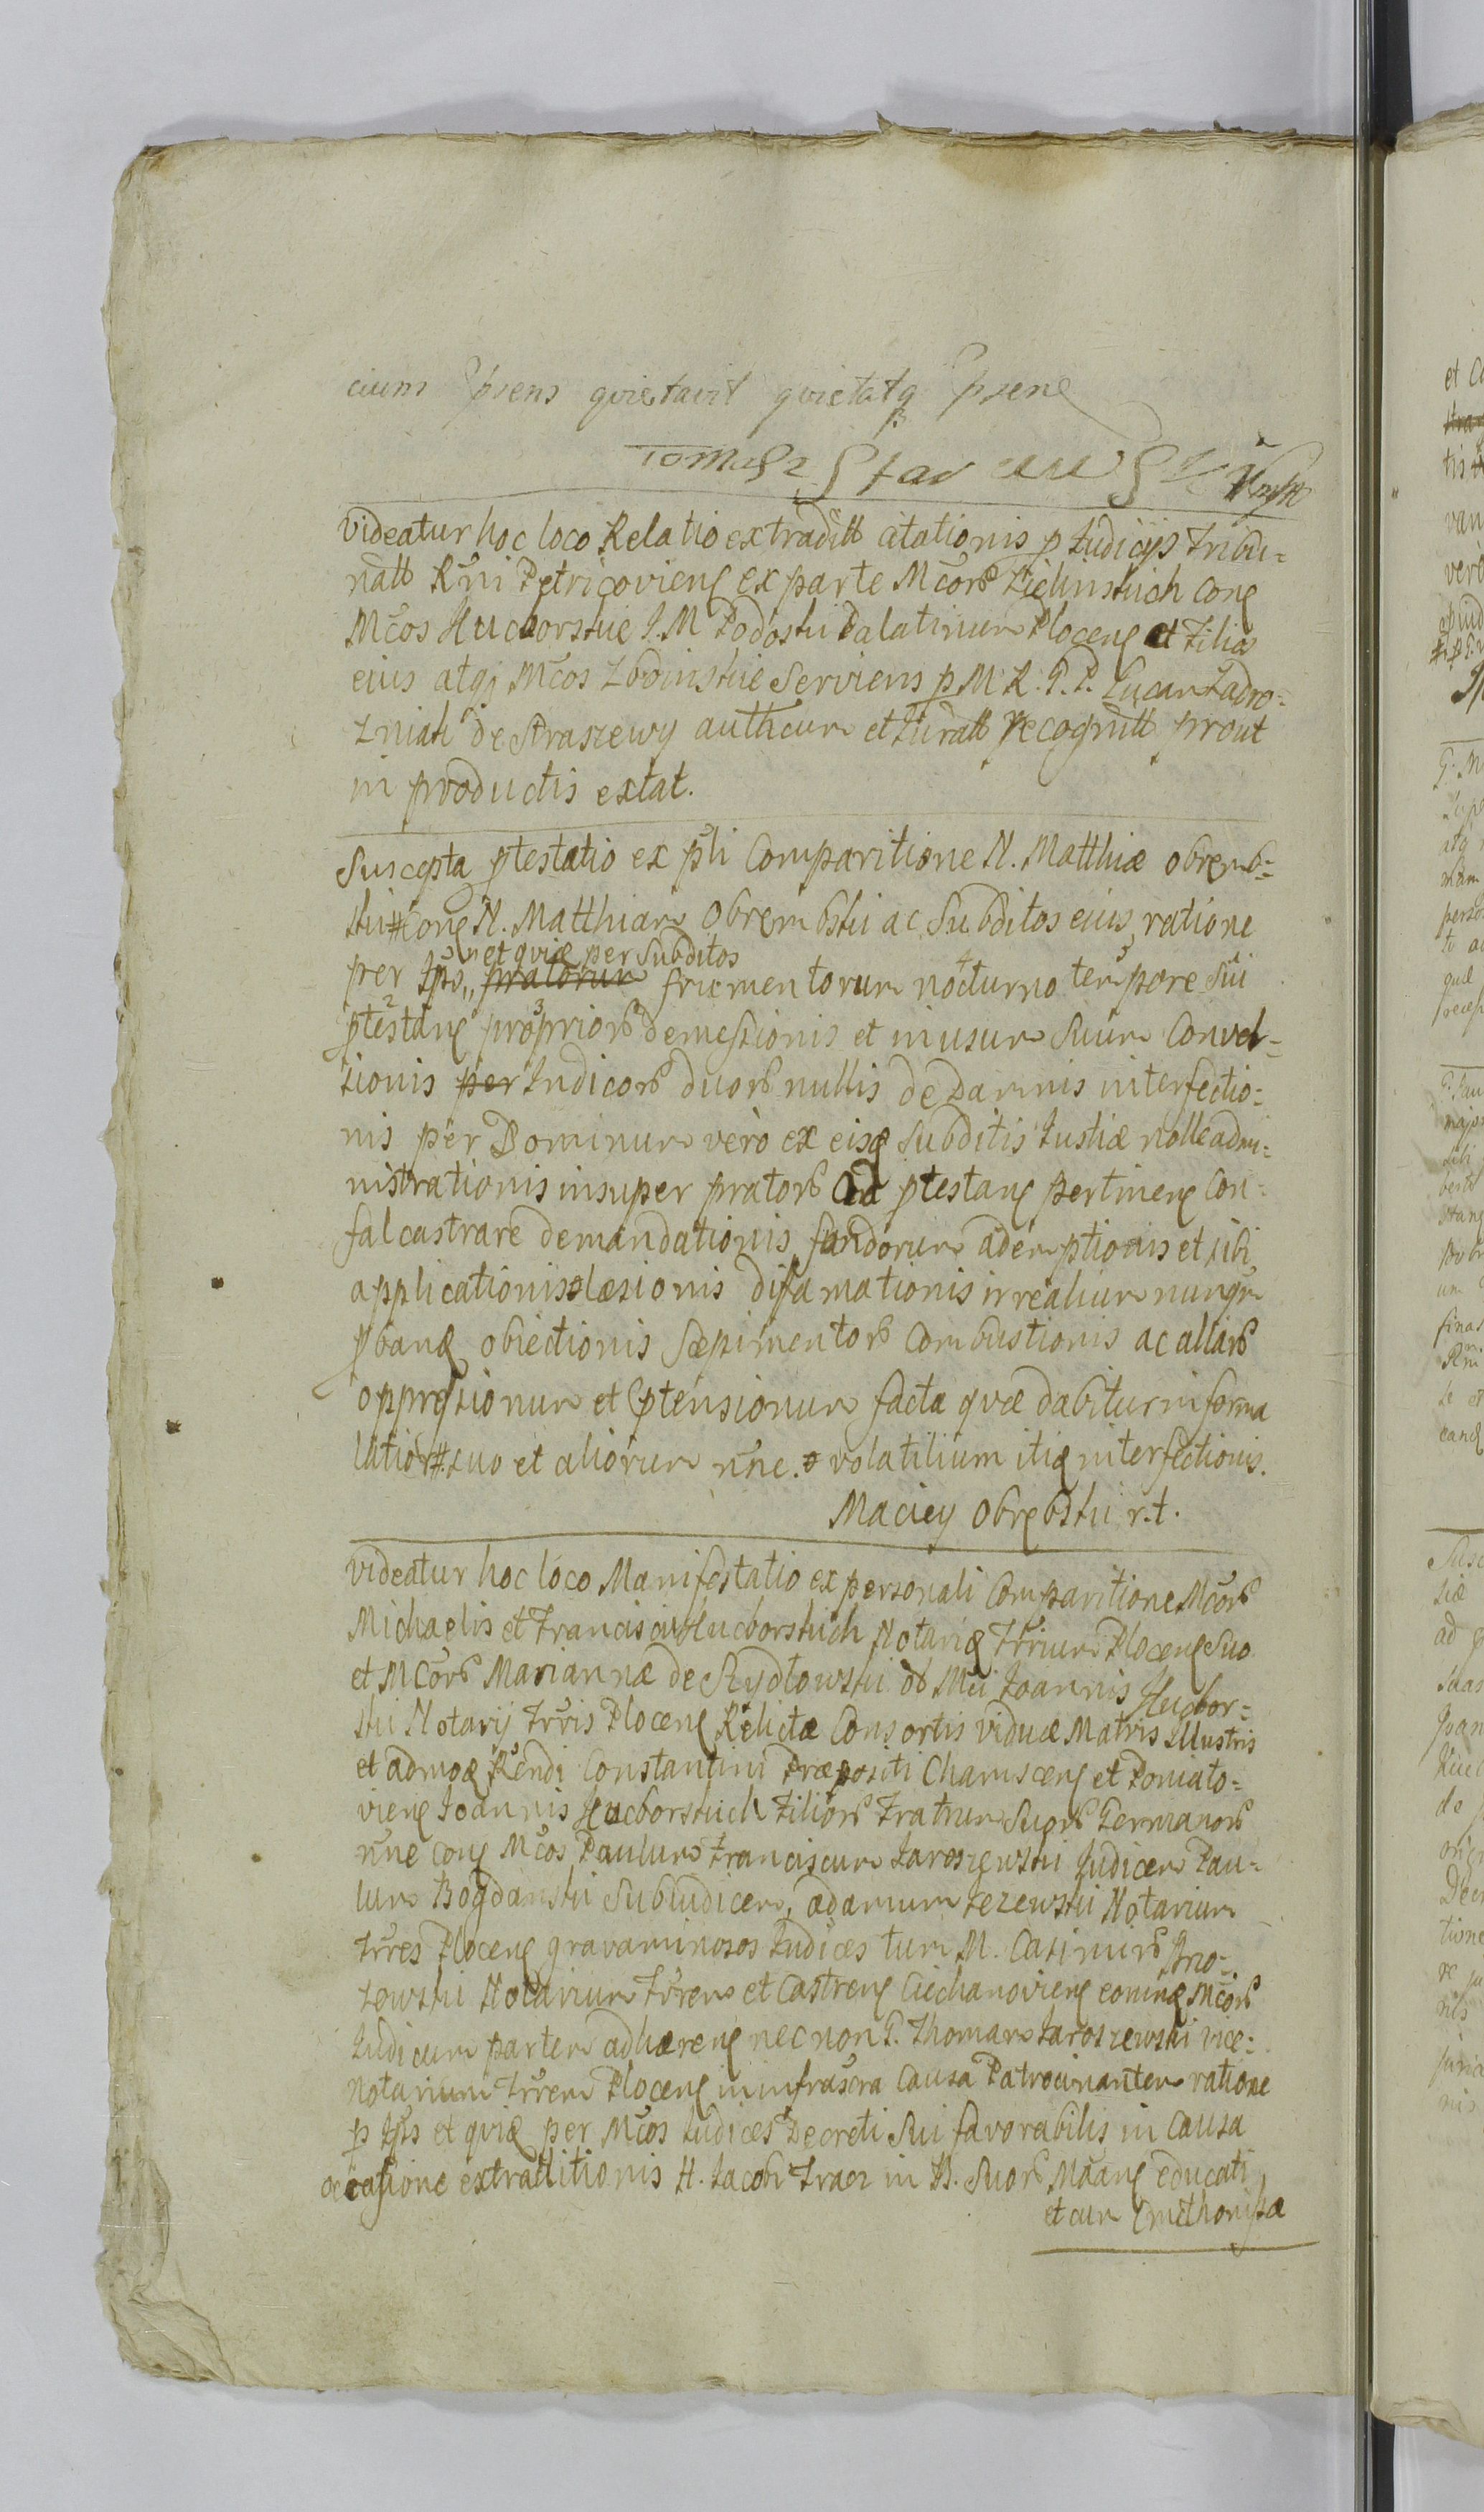 cium prens quietavit quietatq prene
Tomasz
videatur hoc loco Relatio extraditt citationis p Judicijs Tribu-
natt Rni Petricovien ex parte Mcor Zielinskich con
Mcos Huclborskie J. M Podoski Palatinum Plocen et Filios
eius atq Mcos Zboinskie Serviens p M R. G. P. Lucam Zadro-
zniak de Straszewy authcum et Juratt recognitt prout
in productis extat.
Suscepta ptestatio ex pli Comparitione N. Matthiæ obremb-
ski # con N. Matthiam Obrembski ac Subditos eius ratione
net quiæ per Subditos
per Ips pratorum frumentorum nocturno tempore sui
ptestan proprior demessionis et in usum Suum Conver-
sionis per Indicor duor nullis de Damnis interfectio-
nis per Dominum verò ex eisq Subditis Justiæ nolle admi-
nistrationis insuper prator ad ptestan pertinen Con-
falcastrare demandationis fundorum ademptionis et sibi
applicationis læsionis difamationis irrealium nunqm
pband obiectionis Sæpimentor Combustionis ac aliar
oppressionum et Ptensionum facta quæ dabitur in forma
latiori # suo et aliorum nne. volatilium itiq interfectionis.
Maciey Obrębski r. t.
videatur hoc loco Manifestatio ex personali Comparitione Mcor
Michaelis et Francisci Huclborskich Notariq Trrium Plocen Suo
et Mcor Mariannæ de Szydlowski ol Mci Joannis Huclbor-
ski Notarij Trris Plocen Relictæ Consortis viduæ Matris Illustris
et admoq Rendi Constantini Præpositi Chamscen et Poniato-
vien Joannis Huclborskich Filior Fratrum Suor Germanor
nne con Mcos Paulum Franciscum Jaroszewski Judicem Pau-
lum Bogdanski Subiudicem, adamum Jezewski Notarium
Trres Plocen gravaminosos Judices tum M. Casimir Gno-
iewski Notarium Trrem et Castren Ciechanovien eorunq Mcor
Judicum partem adhæren nec non G. Thomam Jaroszewski vice-
Notarium Trrem Plocen in infrascra Causa Patrocinantem ratione
p Ips et quiæ per Mcos Judices Decreti Sui favorabilis in Causa
occasione extraditionis H. Jacobi Fracz in B. Suor Maan educati
et cum Emethonissa